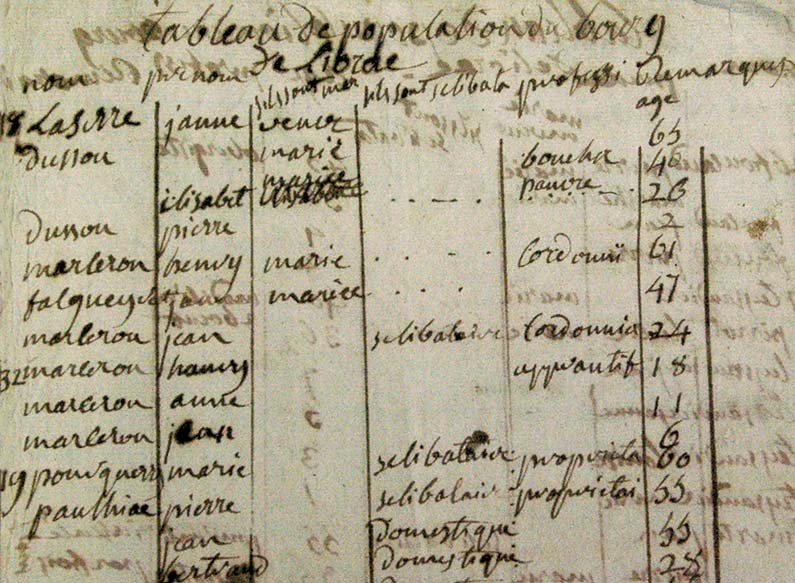 tableau de population du bourg
de Librac
nom prenom silssont mar silssont selibata professi Remarques
age
18 Laserre janne veuve 65
dussou marie boucher 46
elisabet mariée pauvre 26
dussou pierre 2
marceron henry marie Cordonii 61
falgueyret mariée 47
marceron jean selibataire Cordonnia 24
32 marceron henry apprantif 18
marceron anne 11
marceron jean 6
19 pourquery marie selibataire proprieta 60
paulhiac pierre selibalair proprietai 55
jean Domestique 55
bertrand domestique 28